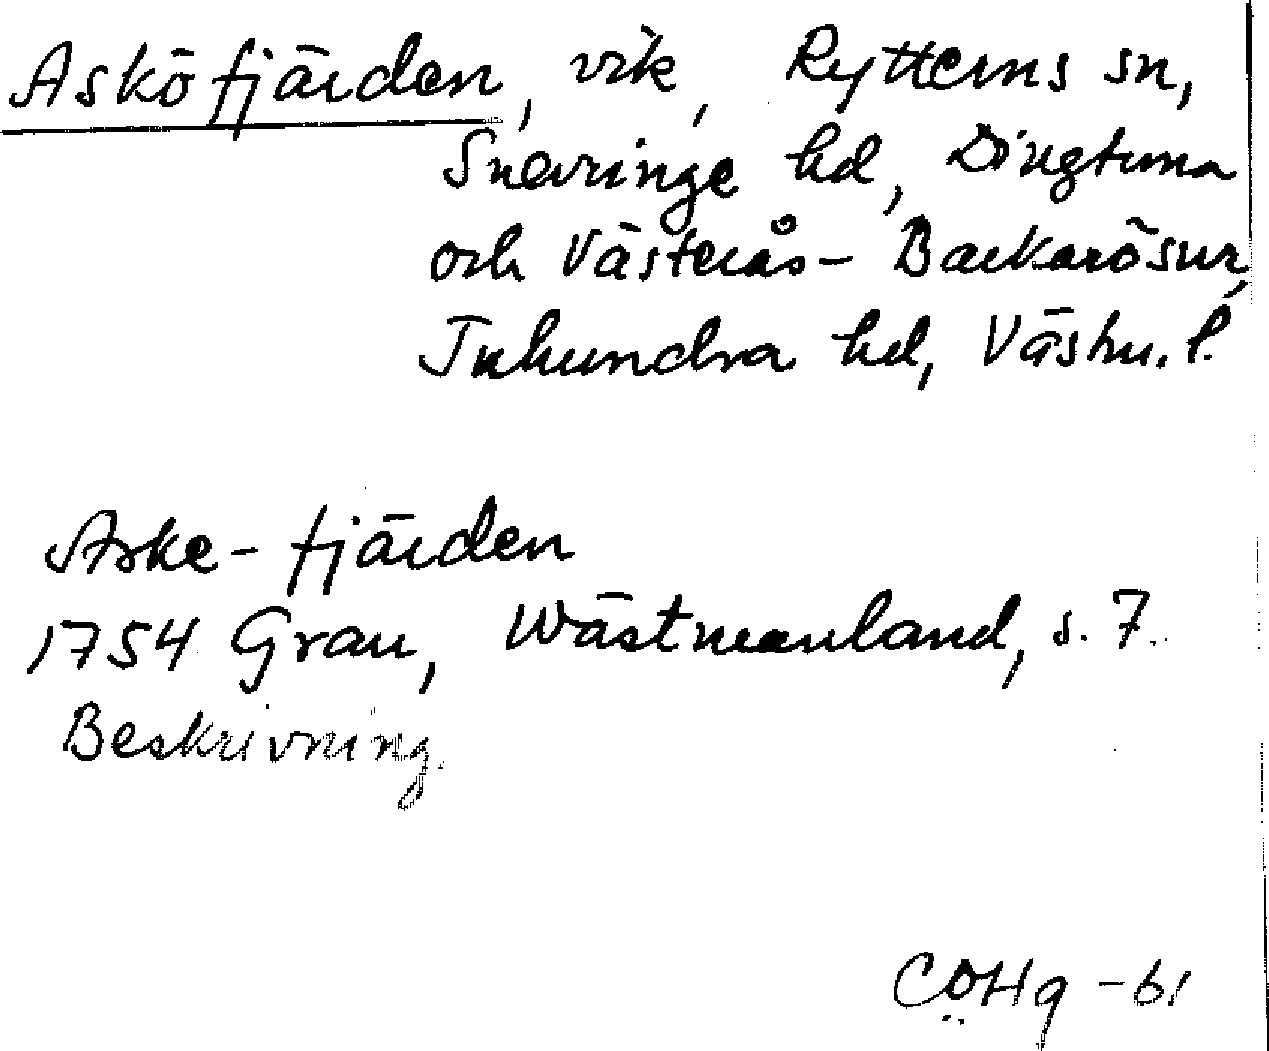 Asköfjärden, vik, Rytterns sn,
Snevringe hd, Dingtuna
och Västerås-Barkarö snr,
Tuhundra hd, Västm. l.
Aske-fjärden
1754 Grau, Wästmanland, s. 7.
Beskrivning.
CÖHg -61